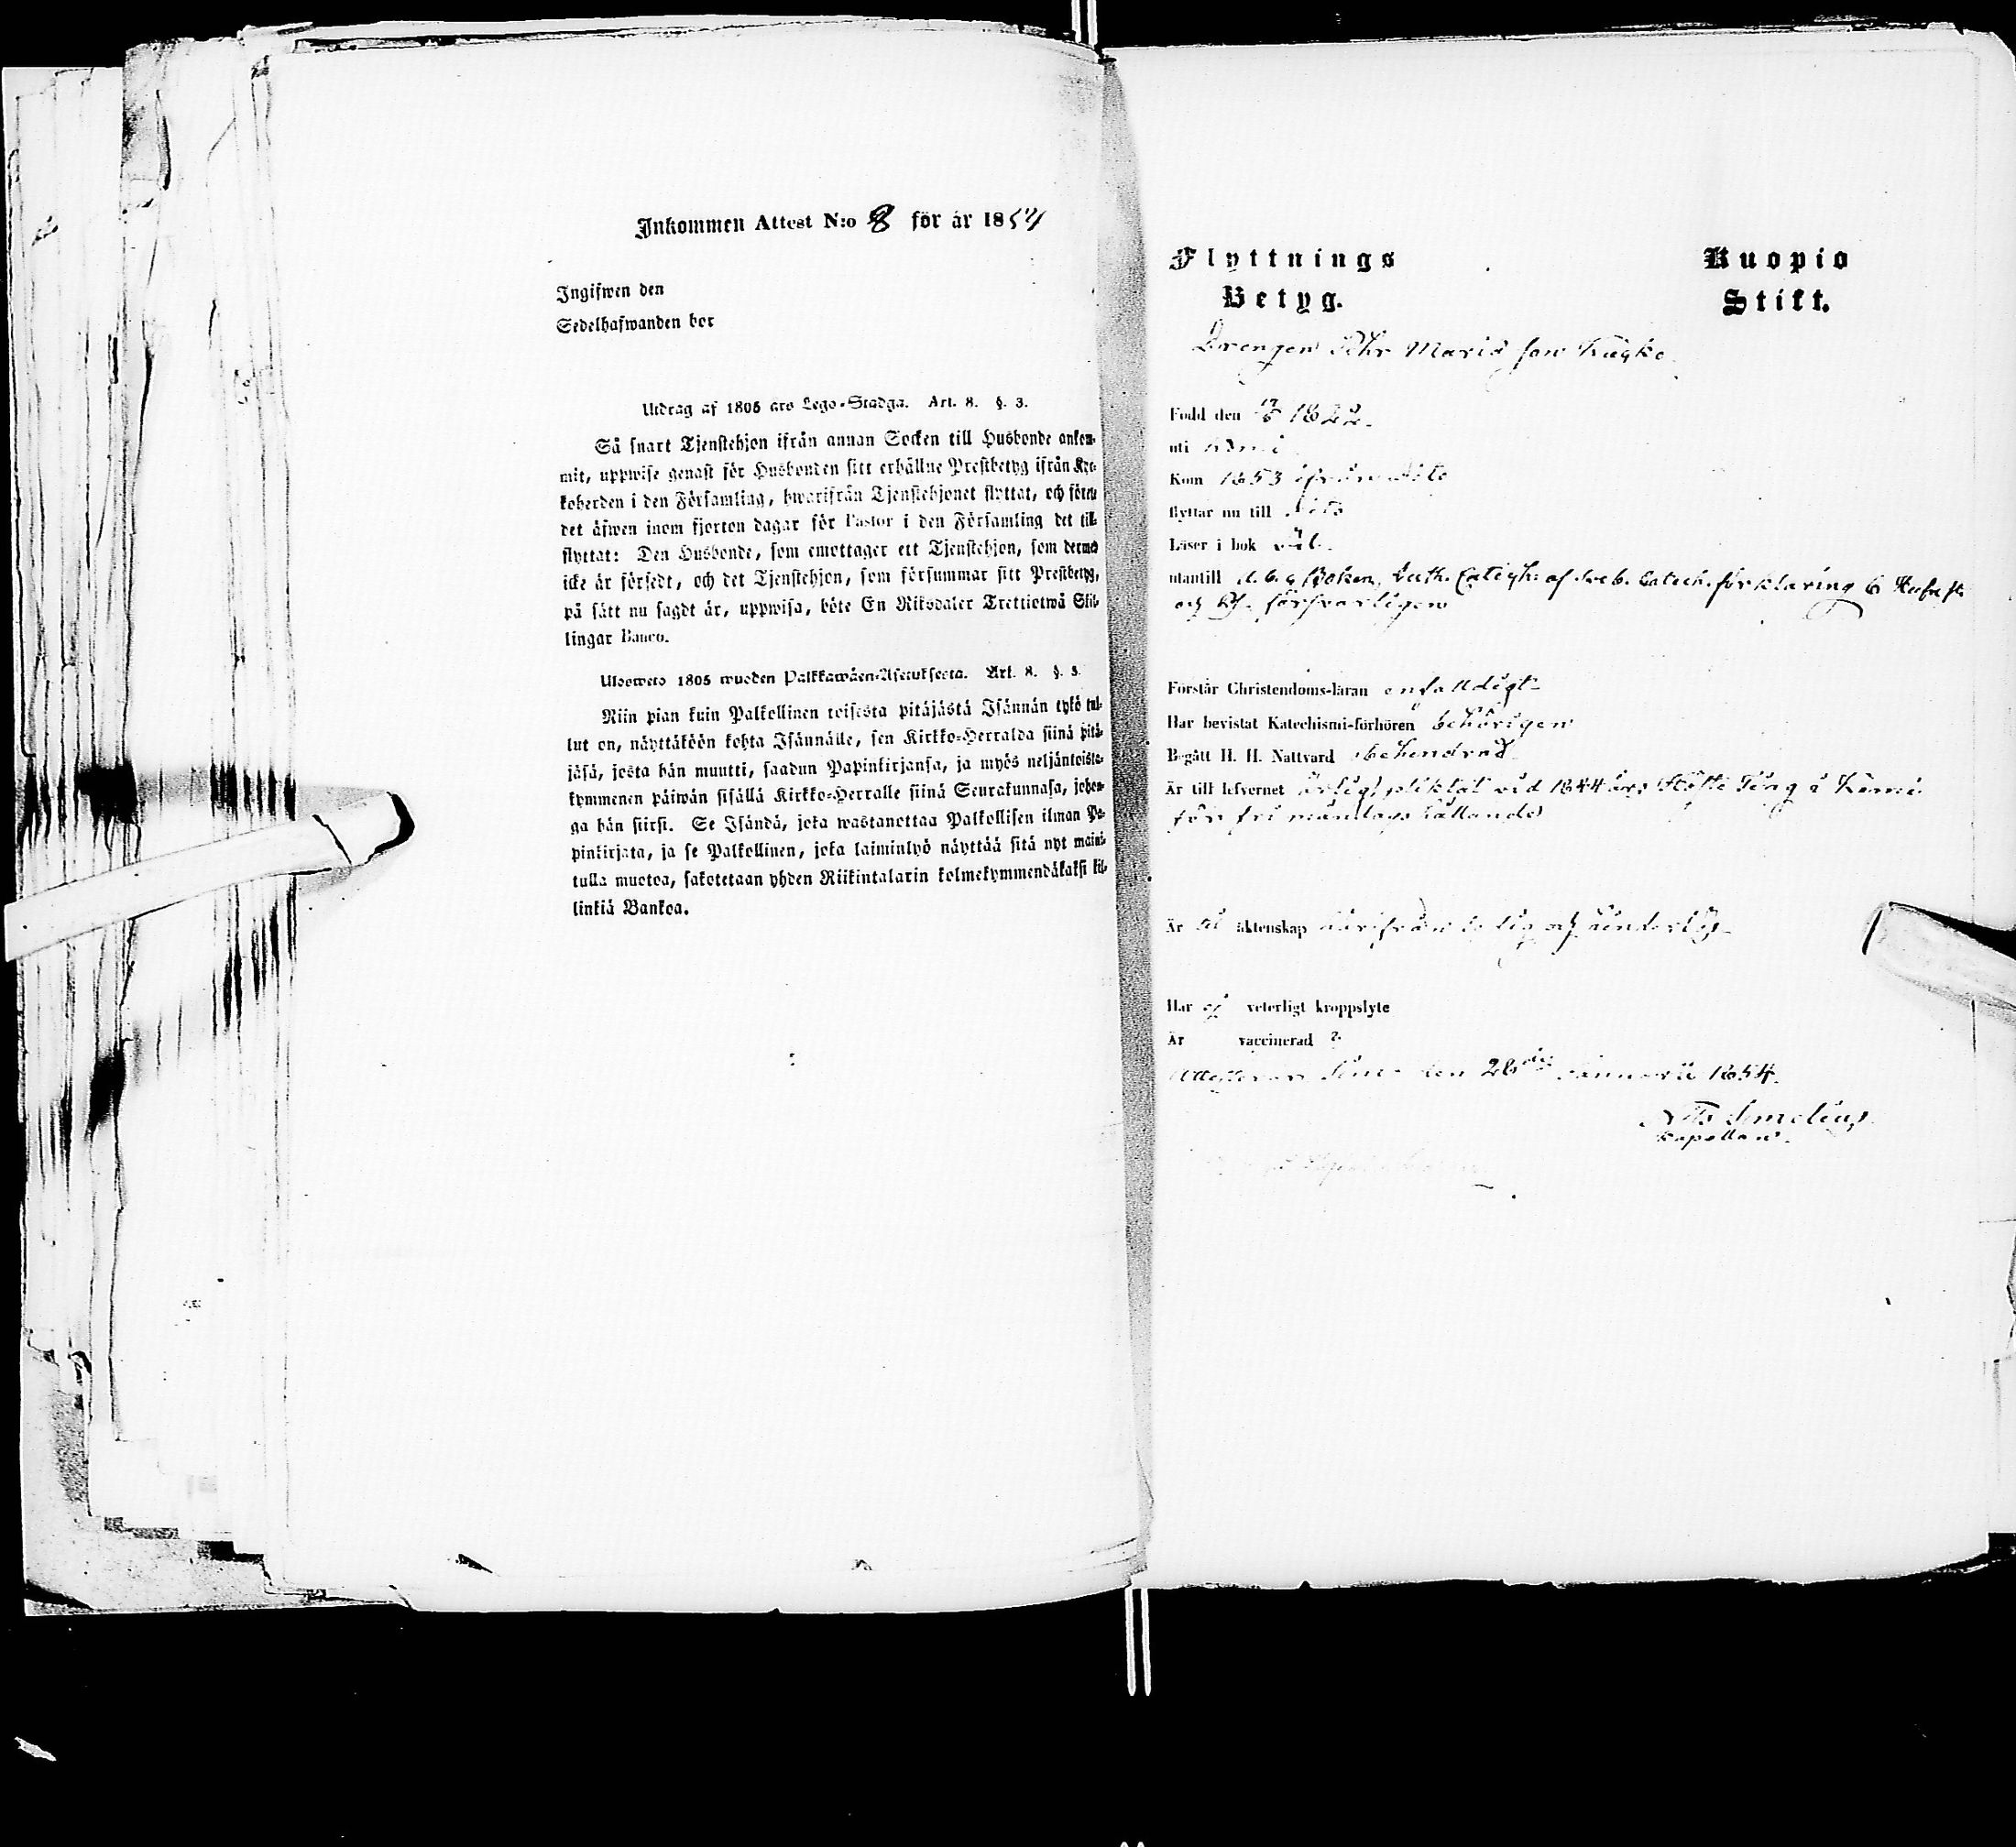 Inkommen Attest N:o 8 för år 1854
Ingifwen den
Sedelhafwanden bor
Utdrag af 1805 års Lego-Stadga. Art. 8. §. 3.
Så snart Tjenstehjon ifrån annan Socken till Husbonde ankom-
mit, uppwise genast för Husbonden sitt erhållne Prestbetyg ifrån Kyr-
koherden i den Församling, hwarifrån Tjenstehjonet flyttat, och förete
det äfwen inom fjorton dagar för Pastor i den Församling det till-
flyttat: Den Husbonde, som emottager ett Tjenstehjon, som dermed
icke är försedt, och det Tjenstehjon, som försummar sitt Prestbetyg,
på sätt nu sagdt är, uppwisa, böte En Riksdaler Trettiotwå Skil-
lingar Banco.
Ulosweto 1805 wuoden Palkkawäen-Asetuksesta. Art. 8. §. 3.
Niin pian kuin Palkollinen toisesta pitäjästä Isännän tykö tul-
lut on, näyttäköön kohta Isännälle, sen Kirkko-Herralda siinä pitä-
jäsä, josta hän muutti, saadun Papinkirjansa, ja myös neljäntoista-
kymmenen päiwän sisällä Kirkko-Herralle siinä Seurakunnasa, johon-
ga hän siirsi. Se Isändä, joka wastanottaa Palkollisen ilman Pa-
pinkirjata, ja se Palkollinen, joka laiminlyö näyttää sitä nyt maini-
tulla muotoa, sakotetaan yhden Riikintalarin kolmekymmendäkaksi kil-
linkiä Bankoa.
Flyttnings Kuopio
Betyg. Stift.
Drengen Pehr Maria son
Född den 1822.
uti Kemi
Kom 1853 ifrån dito
flyttar nu till dito
Läser i bok väl.
utantill a.b.c. Boken, Luth. af Sveb. Catech. förklaring
och försvarligen
Förstår Christendoms-läran enfalldigt
Har bevistat Katechismi-förhören behörigen
Begått H. H. Nattvard obehindrad
Är till lefvernet ärlig, pliktat vid 1844 års Höste Ting i Kemi
för fri måndags hållande
Är till äktenskap härifrån ledig och hinderlös
Har ej veterligt kroppslyte
Är vaccinerad ?
Attesterar den 28de Januarii 1854.
Simelius
Kapellan.